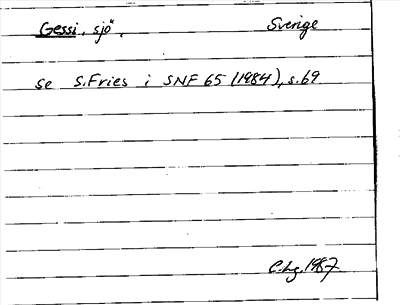 Gessi, sjö, Sverige
se S. Fries i SNF 65 (1984), s. 69
C.Lg. 1987